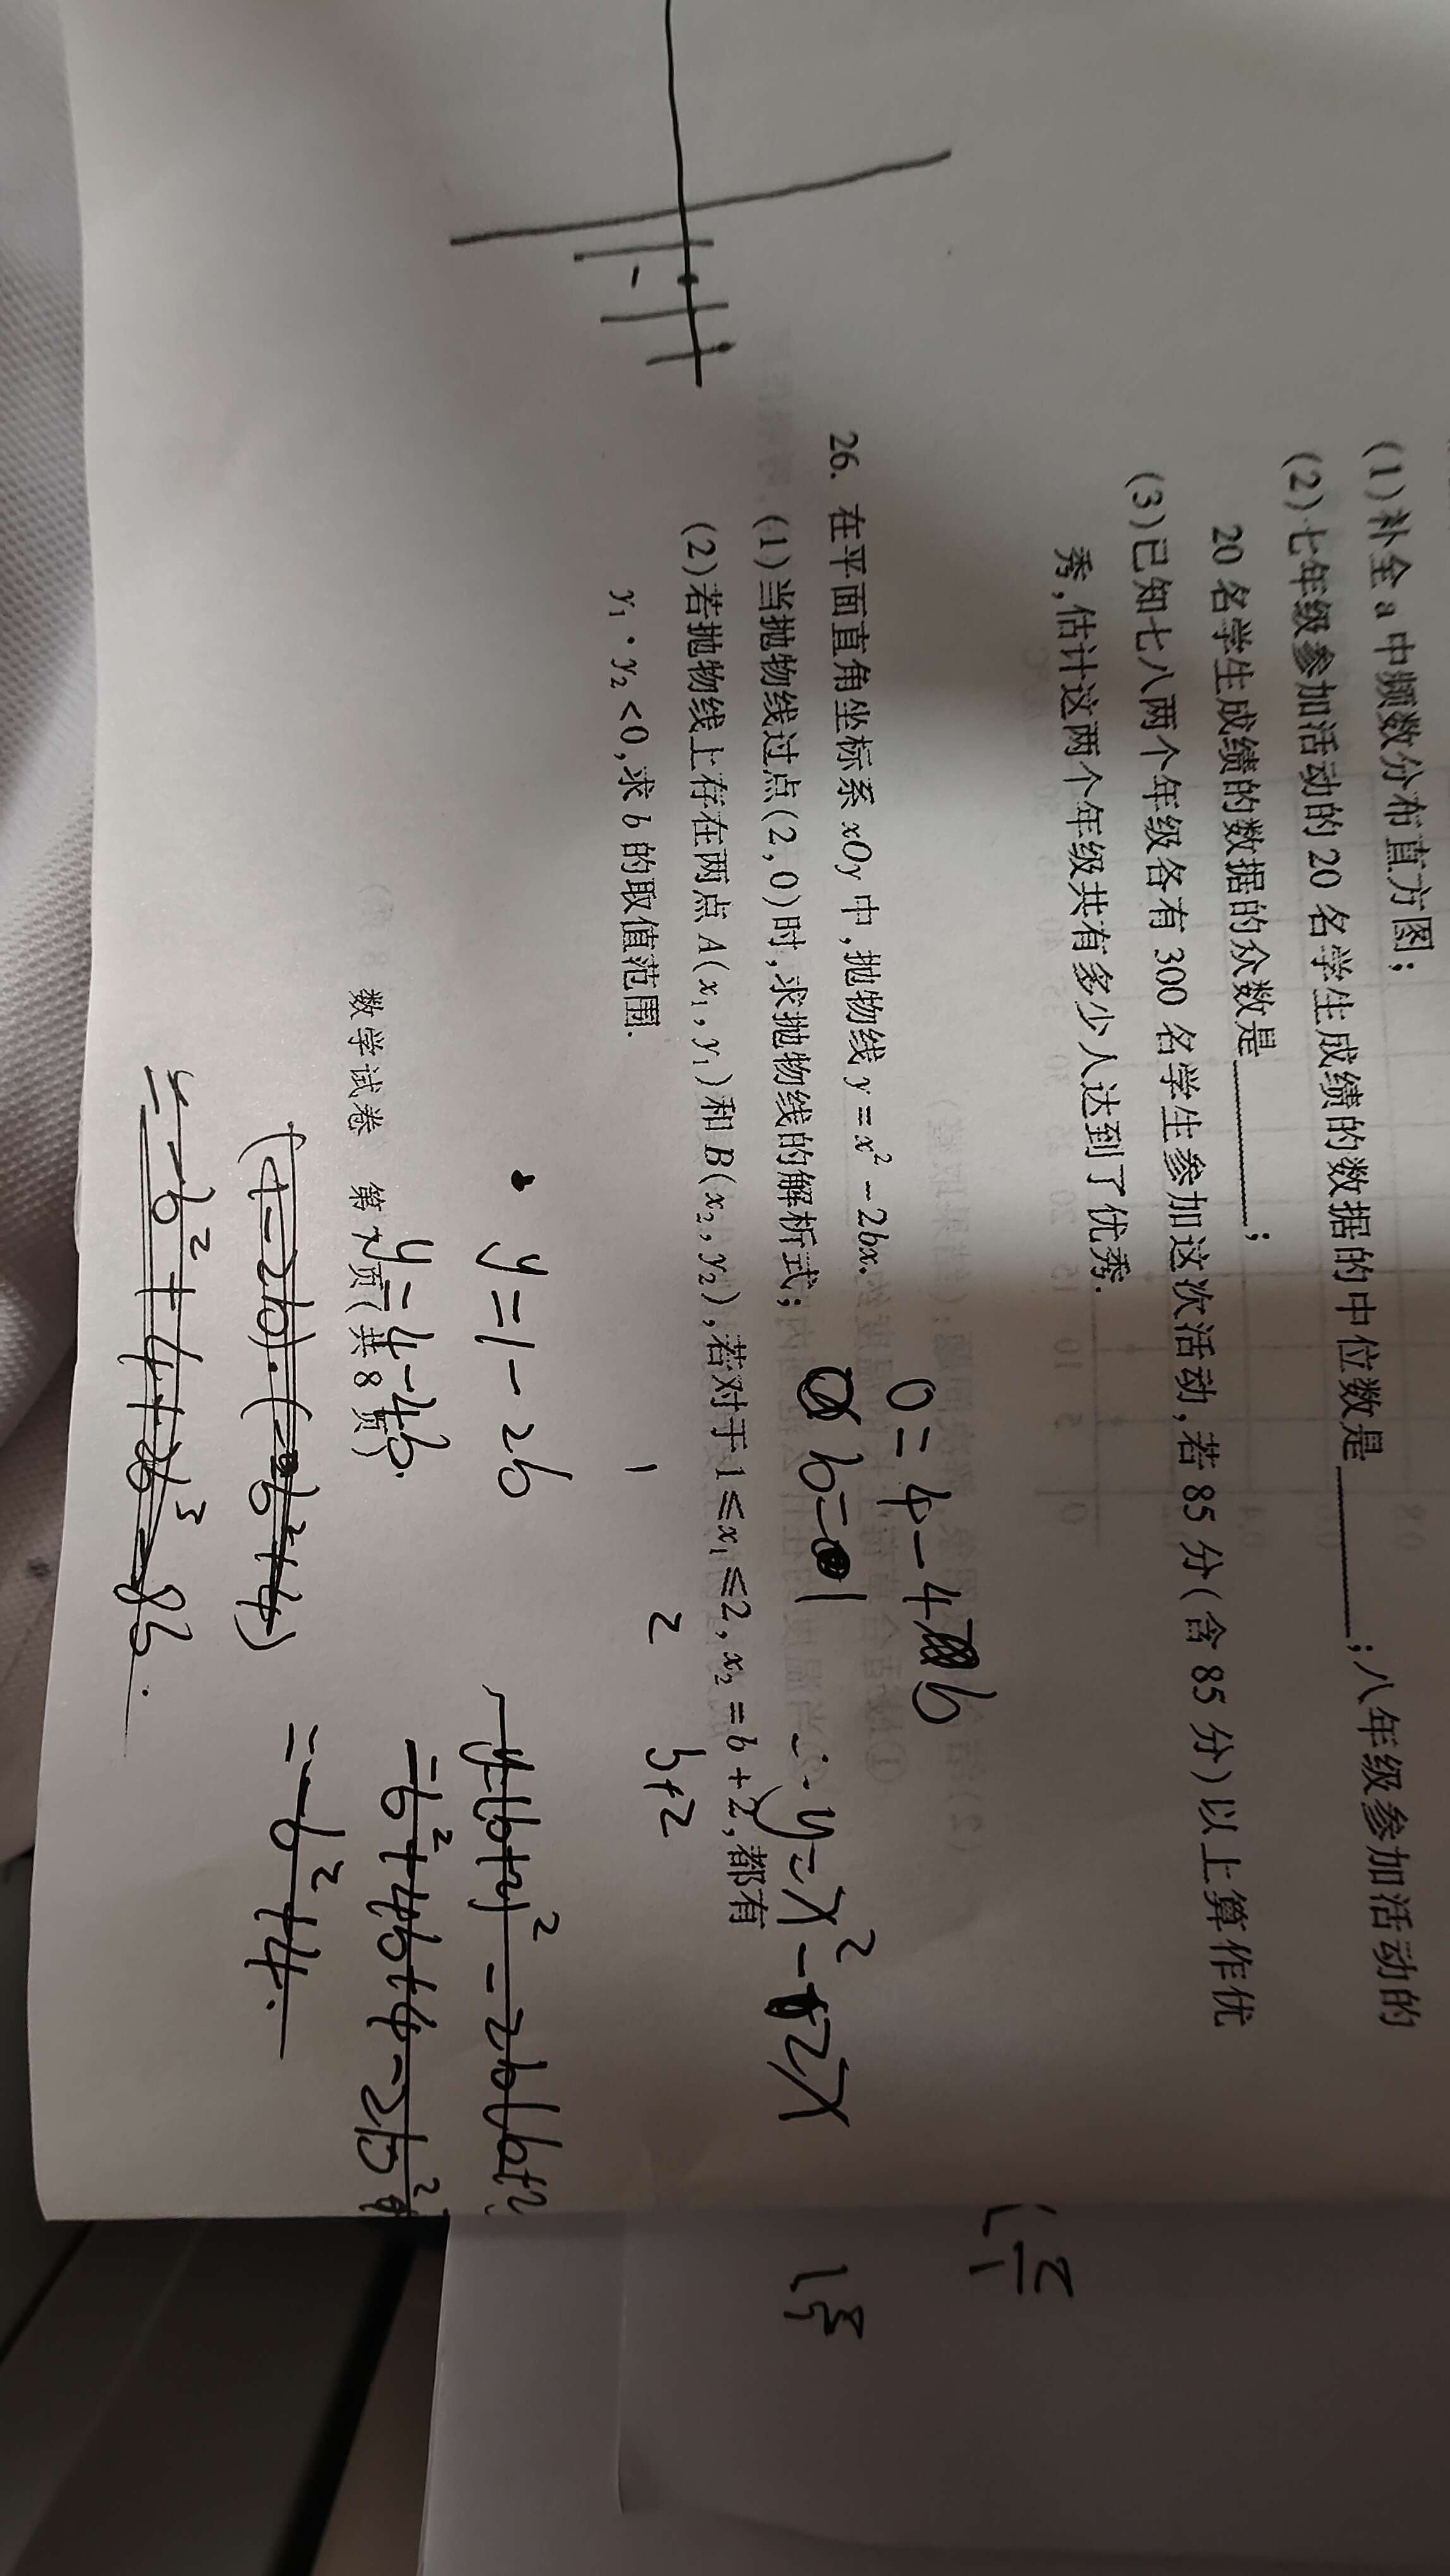 (1)补全a中频数分布直方图;
(2)七年级参加活动的20名学生成绩的数据的中位数是________;八年级参加活动的
20名学生成绩的数据的众数是________;
(3)已知七八两个年级各有300名学生参加这次活动,若85分(含85分)以上算作优
秀,估计这两个年级共有多少人达到了优秀.
0=4-4b
26. 在平面直角坐标系xOy中,抛物线y=x²-2bx.
(1)当抛物线过点(2,0)时,求抛物线的解析式;
b=1
∴y=x²-2x
(2)若抛物线上存在两点A(x₁,y₁)和B(x₂,y₂),若对于1≤x₁≤2,x₂=b+2,都有
y₁·y₂<0,求b的取值范围.
1 2 b+2
y=1-2b
y=4-4b.
y=(b+2)²-2b(b+2
=b²+4b+4-2b²
=-b²+4.
数学试卷 第7页(共8页)
(1-2b)·(-b²+4)
=-b²+4+2b³-8b.